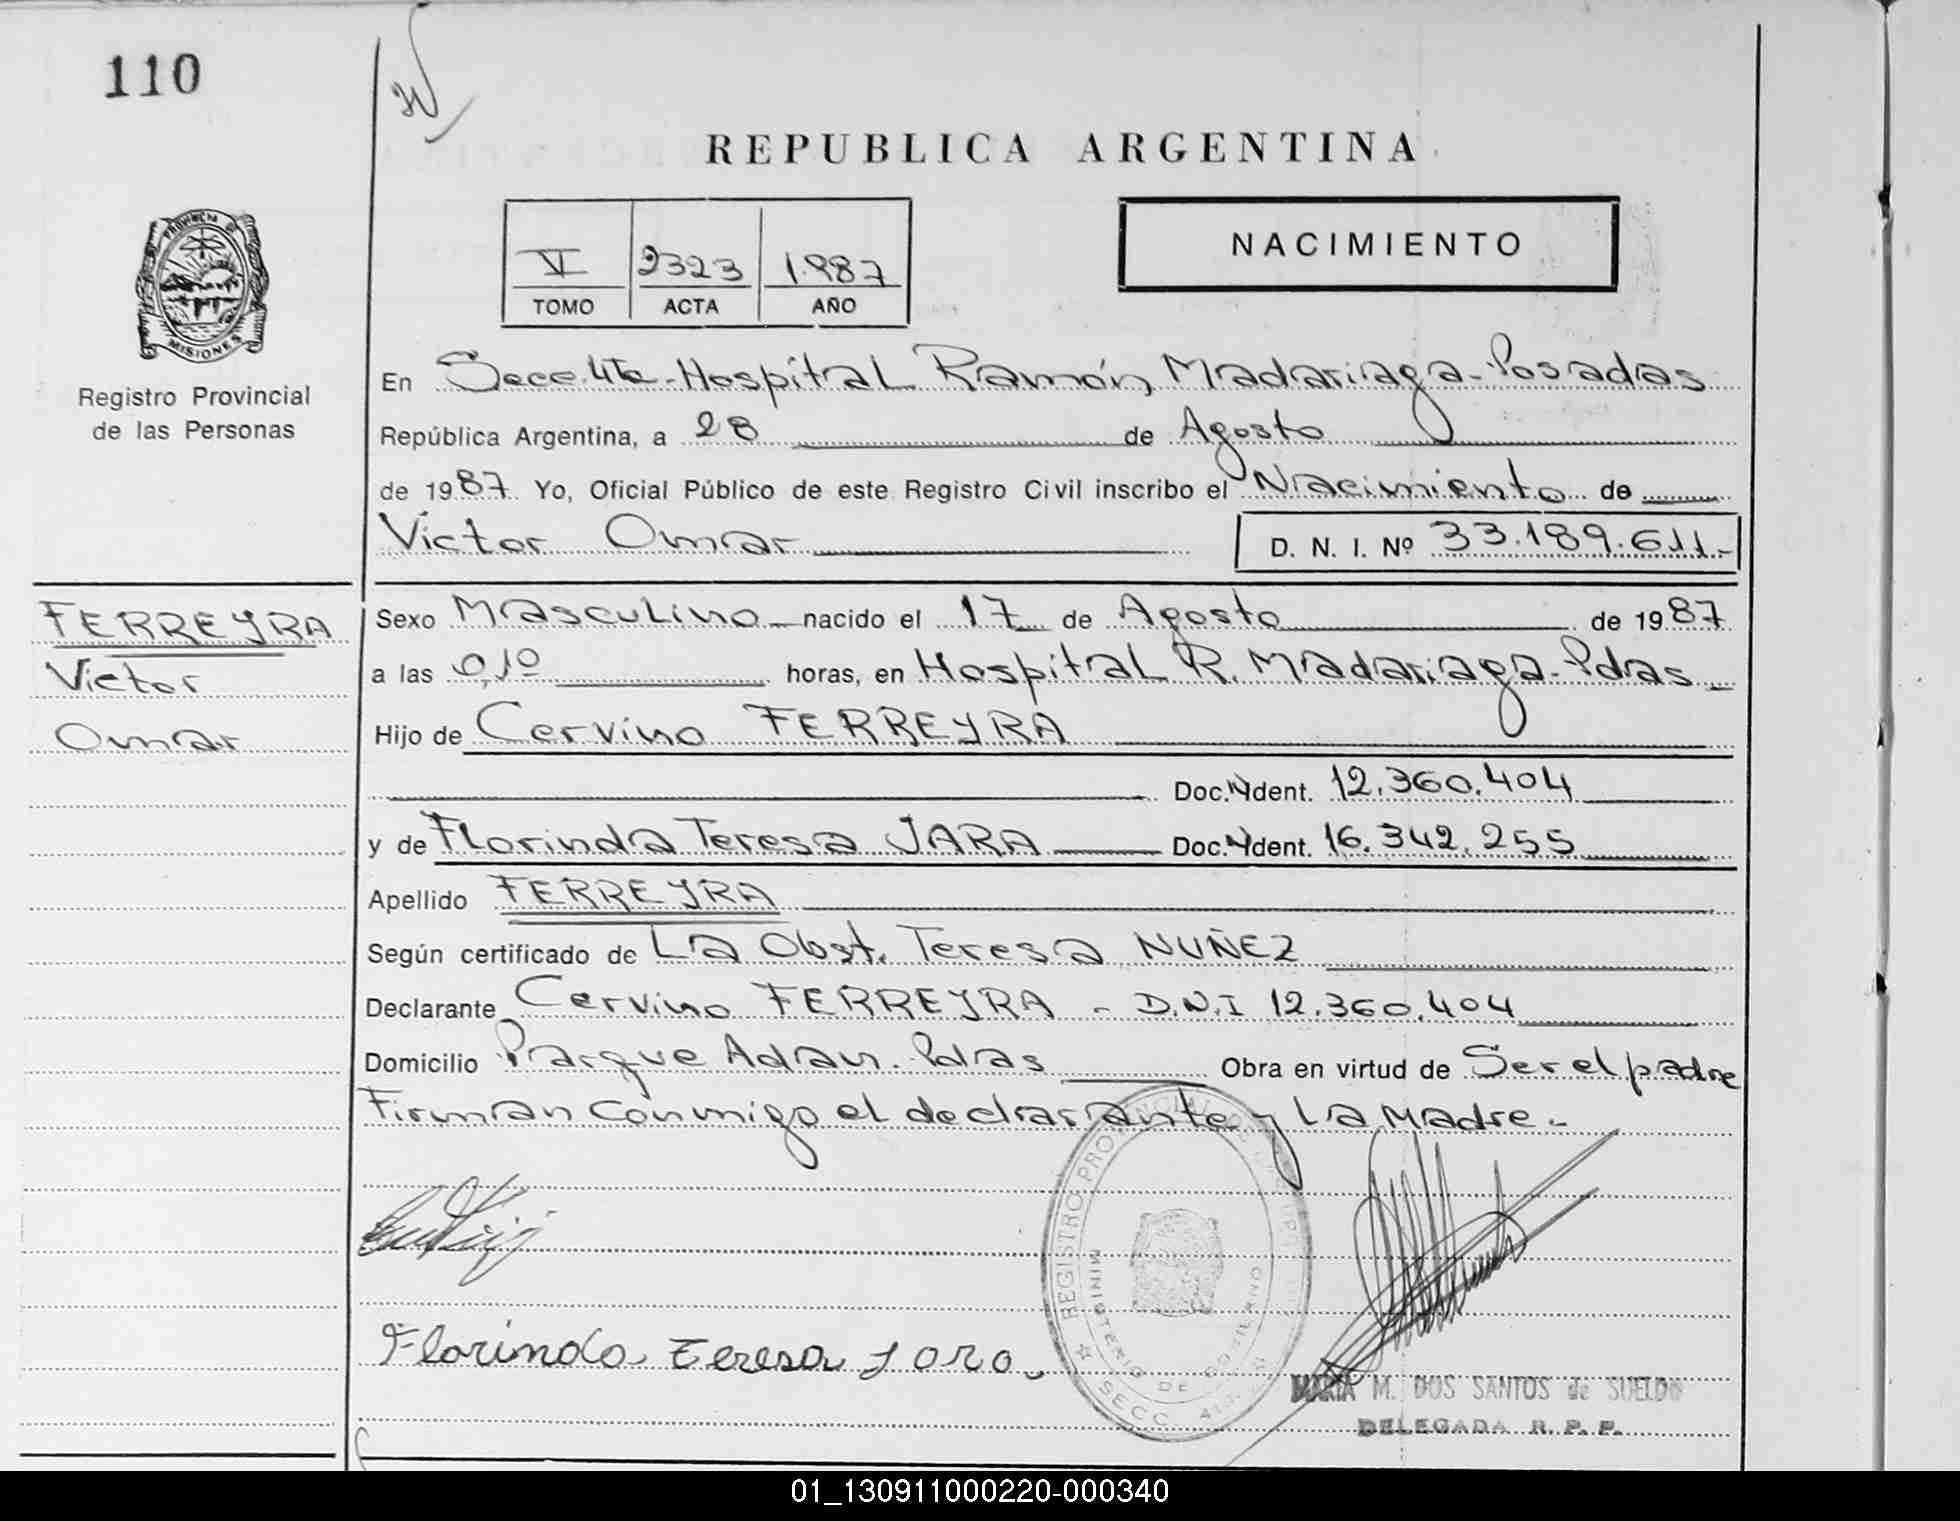 110
REPUBLICA ARGENTINA
PROVINCIA DE
MISIONES
Registro Provincial
de las Personas
V 2323 1.987
TOMO ACTA AÑO
NACIMIENTO
En Secc. 4ta - Hospital Ramón Madariaga - Posadas
República Argentina, a 28 de Agosto
de 1987. Yo, Oficial Público de este Registro Civil inscribo el Nacimiento de
Victor Omar D. N. I. Nº 33.189.611.-
FERREYRA
Victor
Omar
Sexo Masculino nacido el 17 de Agosto de 1987
a las 0,10 horas, en Hospital R. Madariaga - Pdas -
Hijo de Cervino FERREYRA
Doc. Ident. 12.360.404
y de Florinda Teresa JARA Doc. Ident. 16.342.255
Apellido FERREYRA
Según certificado de La Obst. Teresa NUÑEZ
Declarante Cervino FERREYRA - D.N.I 12.360.404
Domicilio Parque Adan - Pdas Obra en virtud de Ser el padre
Firman conmigo el declarante y La Madre.-
REGISTRO PROVINCIAL DE
MINISTERIO DE GOBIERNO
SECC.
Florinda Teresa Jara
MARIA M. DOS SANTOS de SUELDO
DELEGADA R. P. P.
01_130911000220-000340